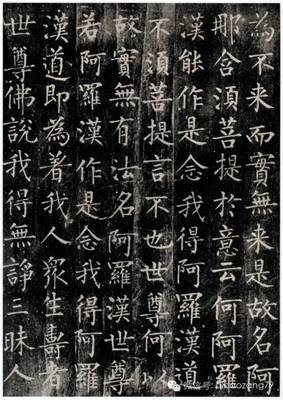 為不来而實無来是故名阿
那含須菩提於意云何阿羅
漢能作是念我得阿羅漢道
不須菩提言不也世尊何以
故實無有法名阿羅漢世尊
若阿羅漢作是念我得阿羅
漢道即為着我人眾生壽者
世尊佛說我得無諍三昧人
微信号: